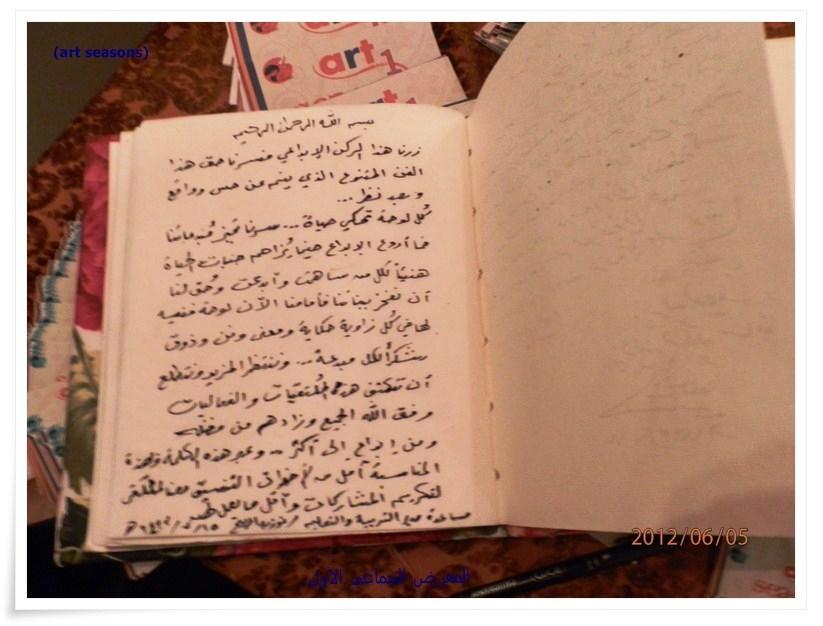 (art seasons)
art
1
art
بسم الله الرحمن الرحيم
زرنا هذا الركن الإبداعي فسرنا حق هذا
الفن المتنوع الذي ينم عن حس وواقع
و بعد نظر ...
كُل لوحة تحكي حياة ... سرنا تميز مُبدعاتنا
فما أروع الإبداع حينما يُزاهم جنبات الحياة
هنيئاً لكل من ساهمت وأبدعت وحُق لنا
أن نفخر ببناتنا فأمامنا الآن لوحة فنيه
لها في كُل زاوية حكاية ومعنى وفن وذوق
شكراً لكل مبدعة ... وننتظر المزيد ونتطلع
أن تكثف هذه المُلتقيات والفعاليات
وفق الله الجميع وزادهم من فضله
ومن إبداع إلى أكثر .. وعبر هذه الكلمة وبهذة
المناسبة آمل من التنسيق معنا
لتكريم المشاركات وأقل ما نعمل
مساعدة مدير التربية والتعليم
2012/06/05
المعرض الجماعي الاول